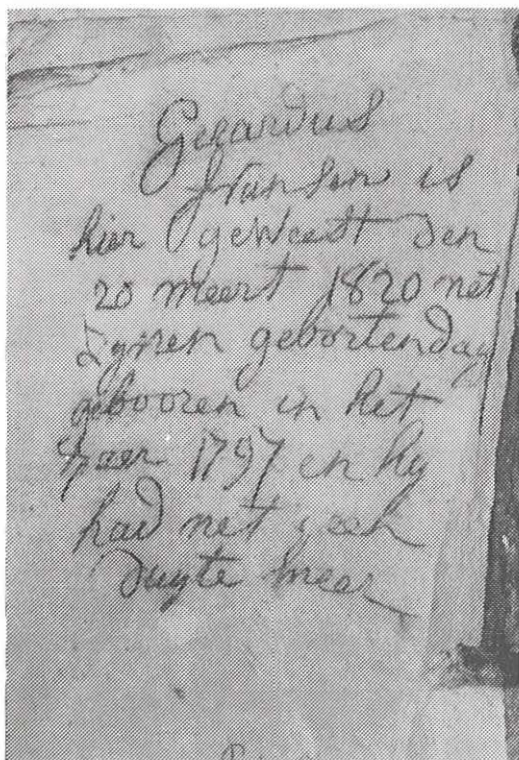 Gerardus
Fransen is
hier geweest den
20 meert 1820 net
zynen gebortendag
gebooren in het
Jaer 1797 en hy
had net geen
duyte meer